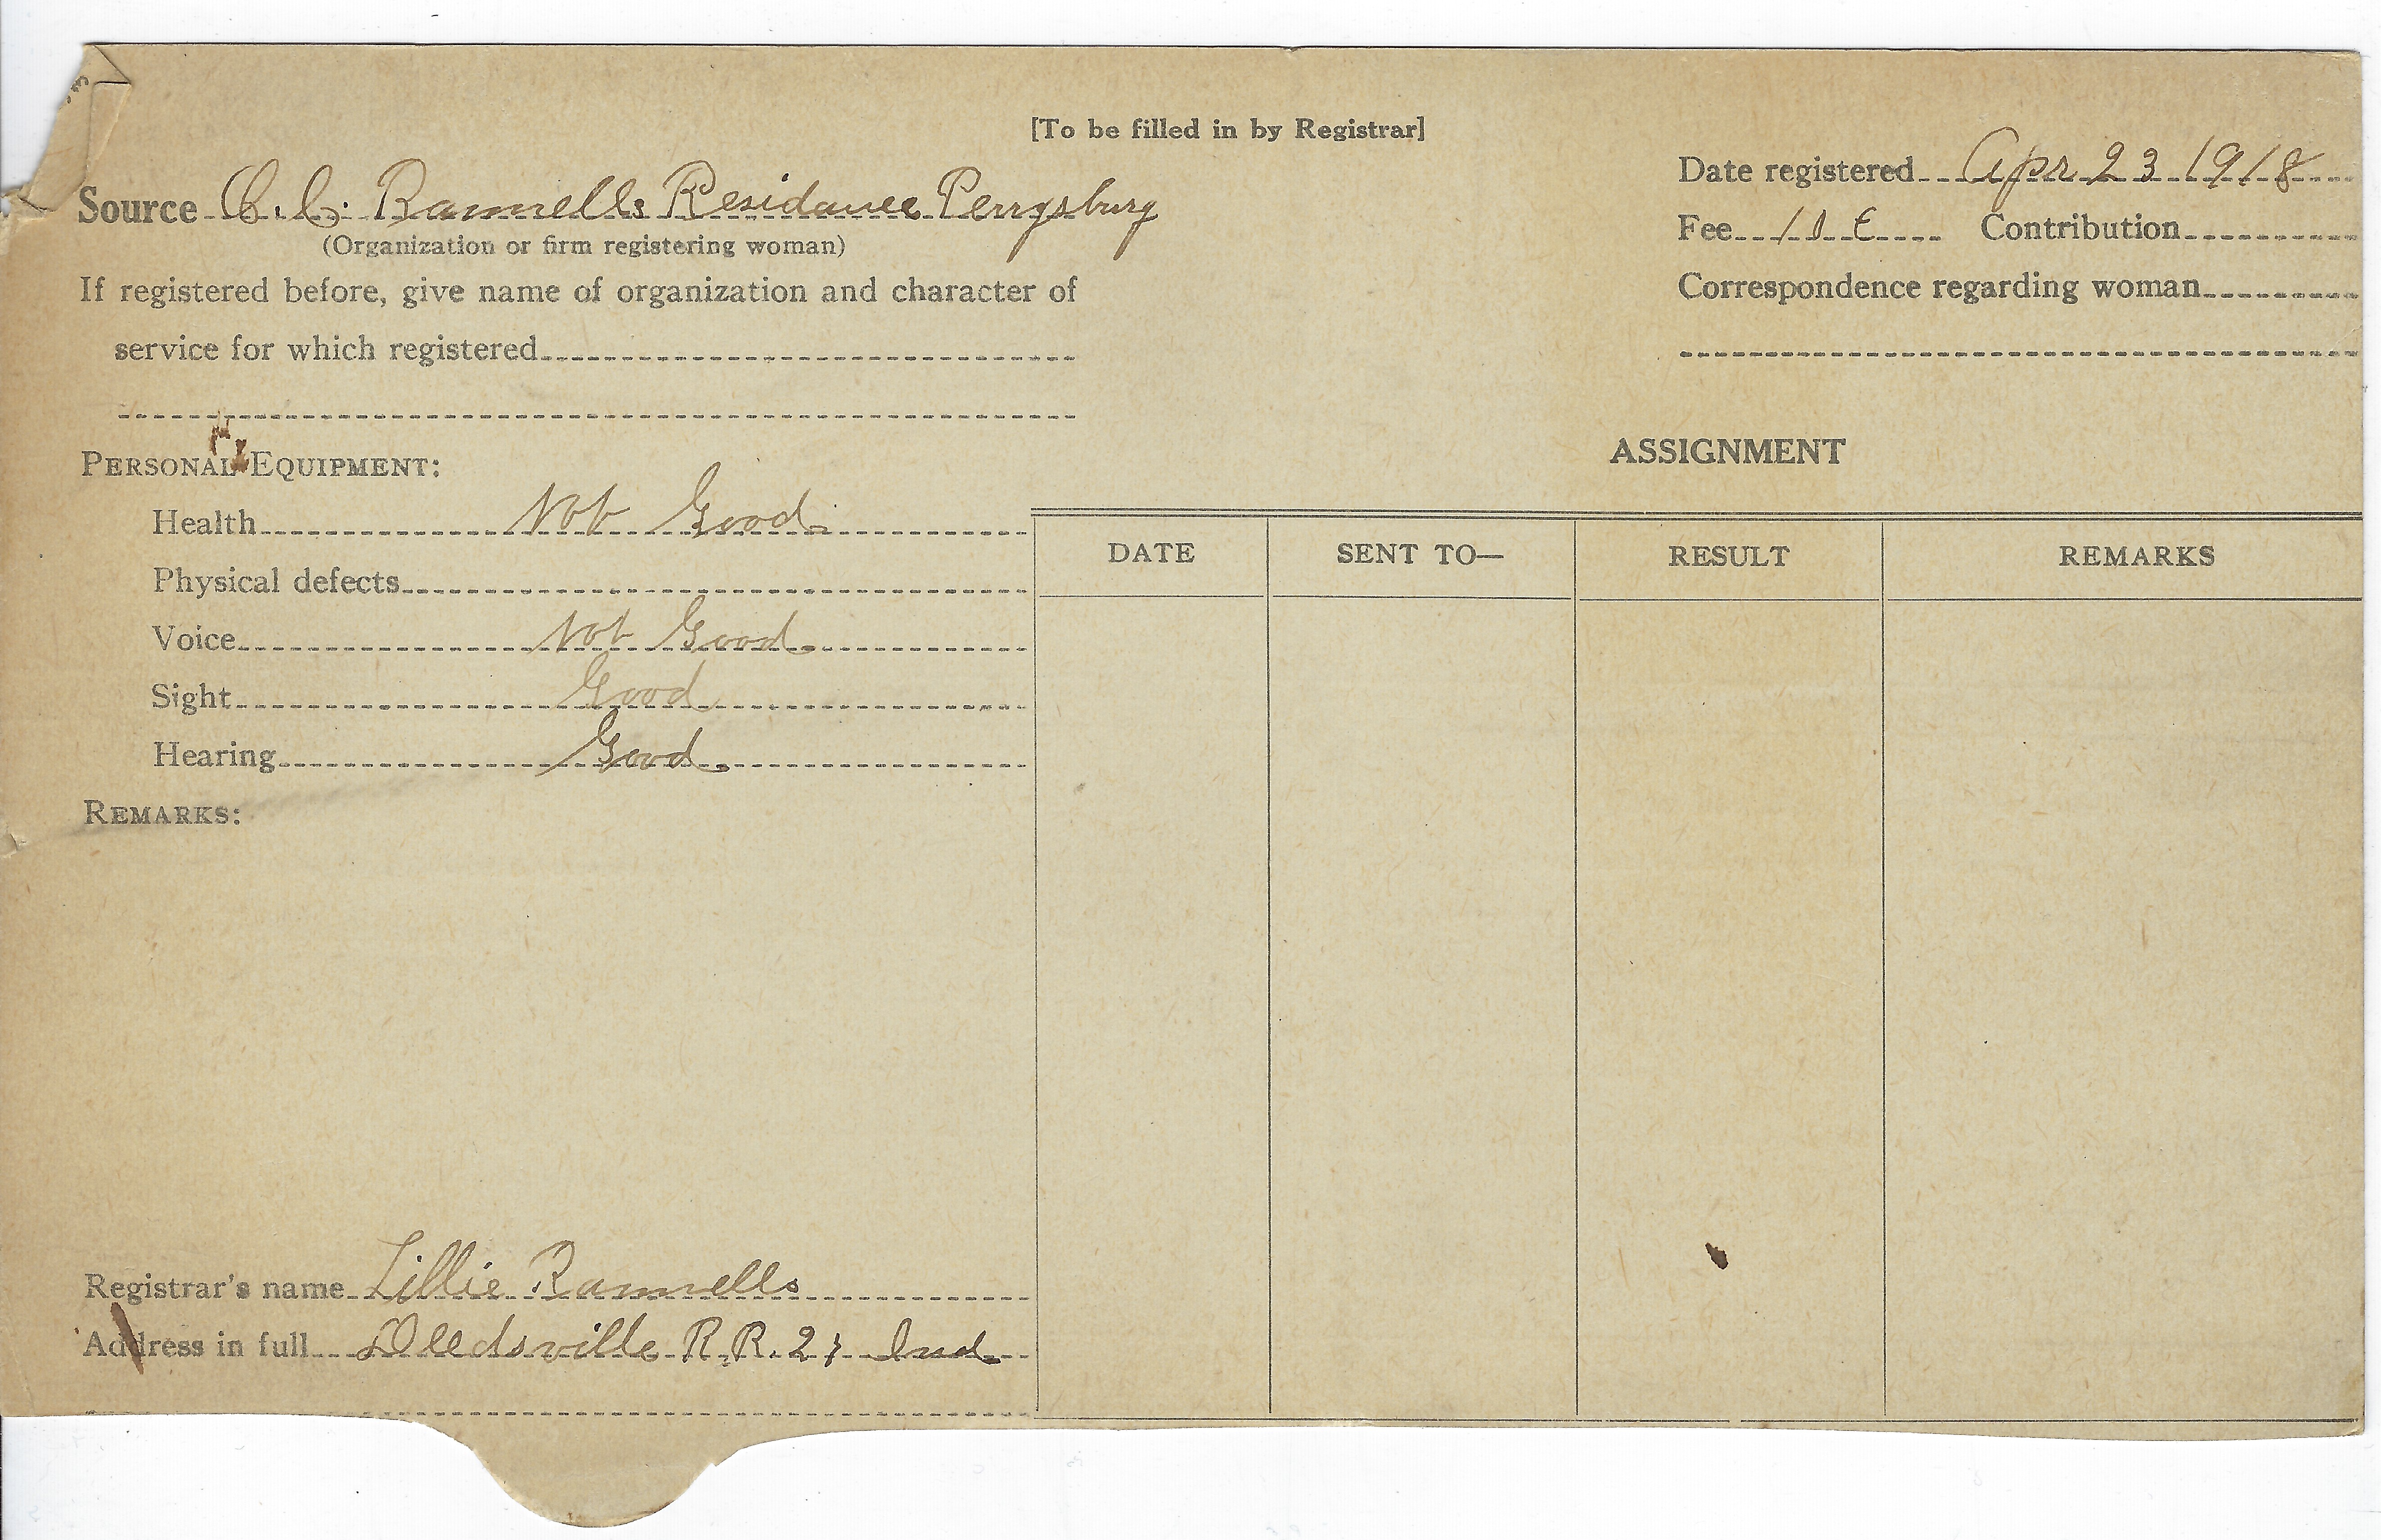 [To be filled in by Registrar]
Date registered Apr 23 1918
Source C. C. Rannells Residance Perrysburg
(Organization or firm registering woman)
Fee Contribution
If registered before, give name of organization and character of
Correspondence regarding woman
service for which registered
ASSIGNMENT
PERSONAL EQUIPMENT:
Health Not Good
DATE SENT TO— RESULT REMARKS
Physical defects
Voice Not Good
Sight Good
Hearing Good
REMARKS:
Registrar's name Lillie Rannells
Address in full Deedsville R.R. 2; Ind